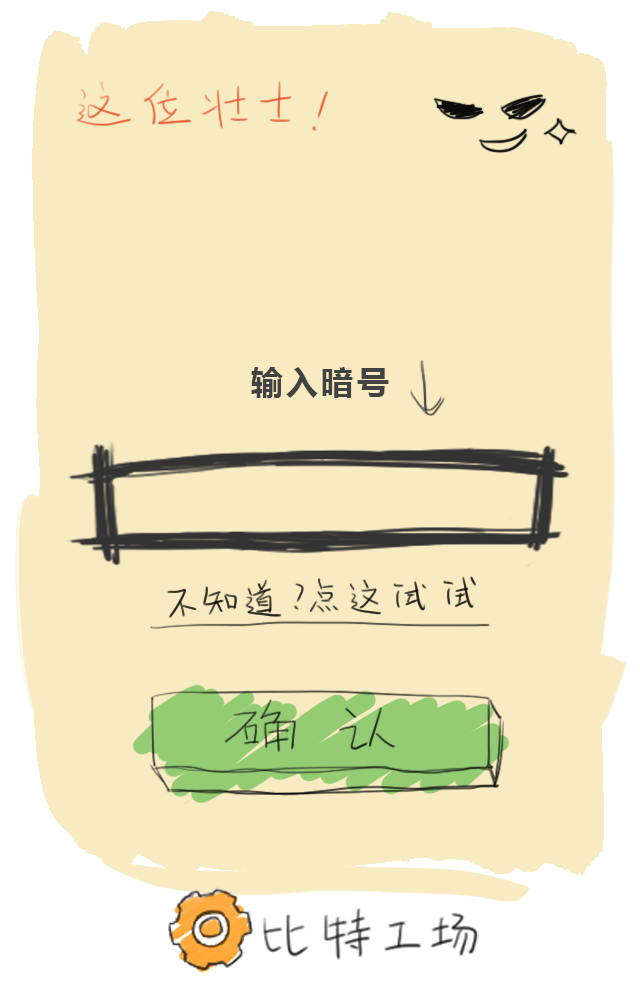 这位壮士!
输入暗号
不知道?点这试试
确认
比特工场